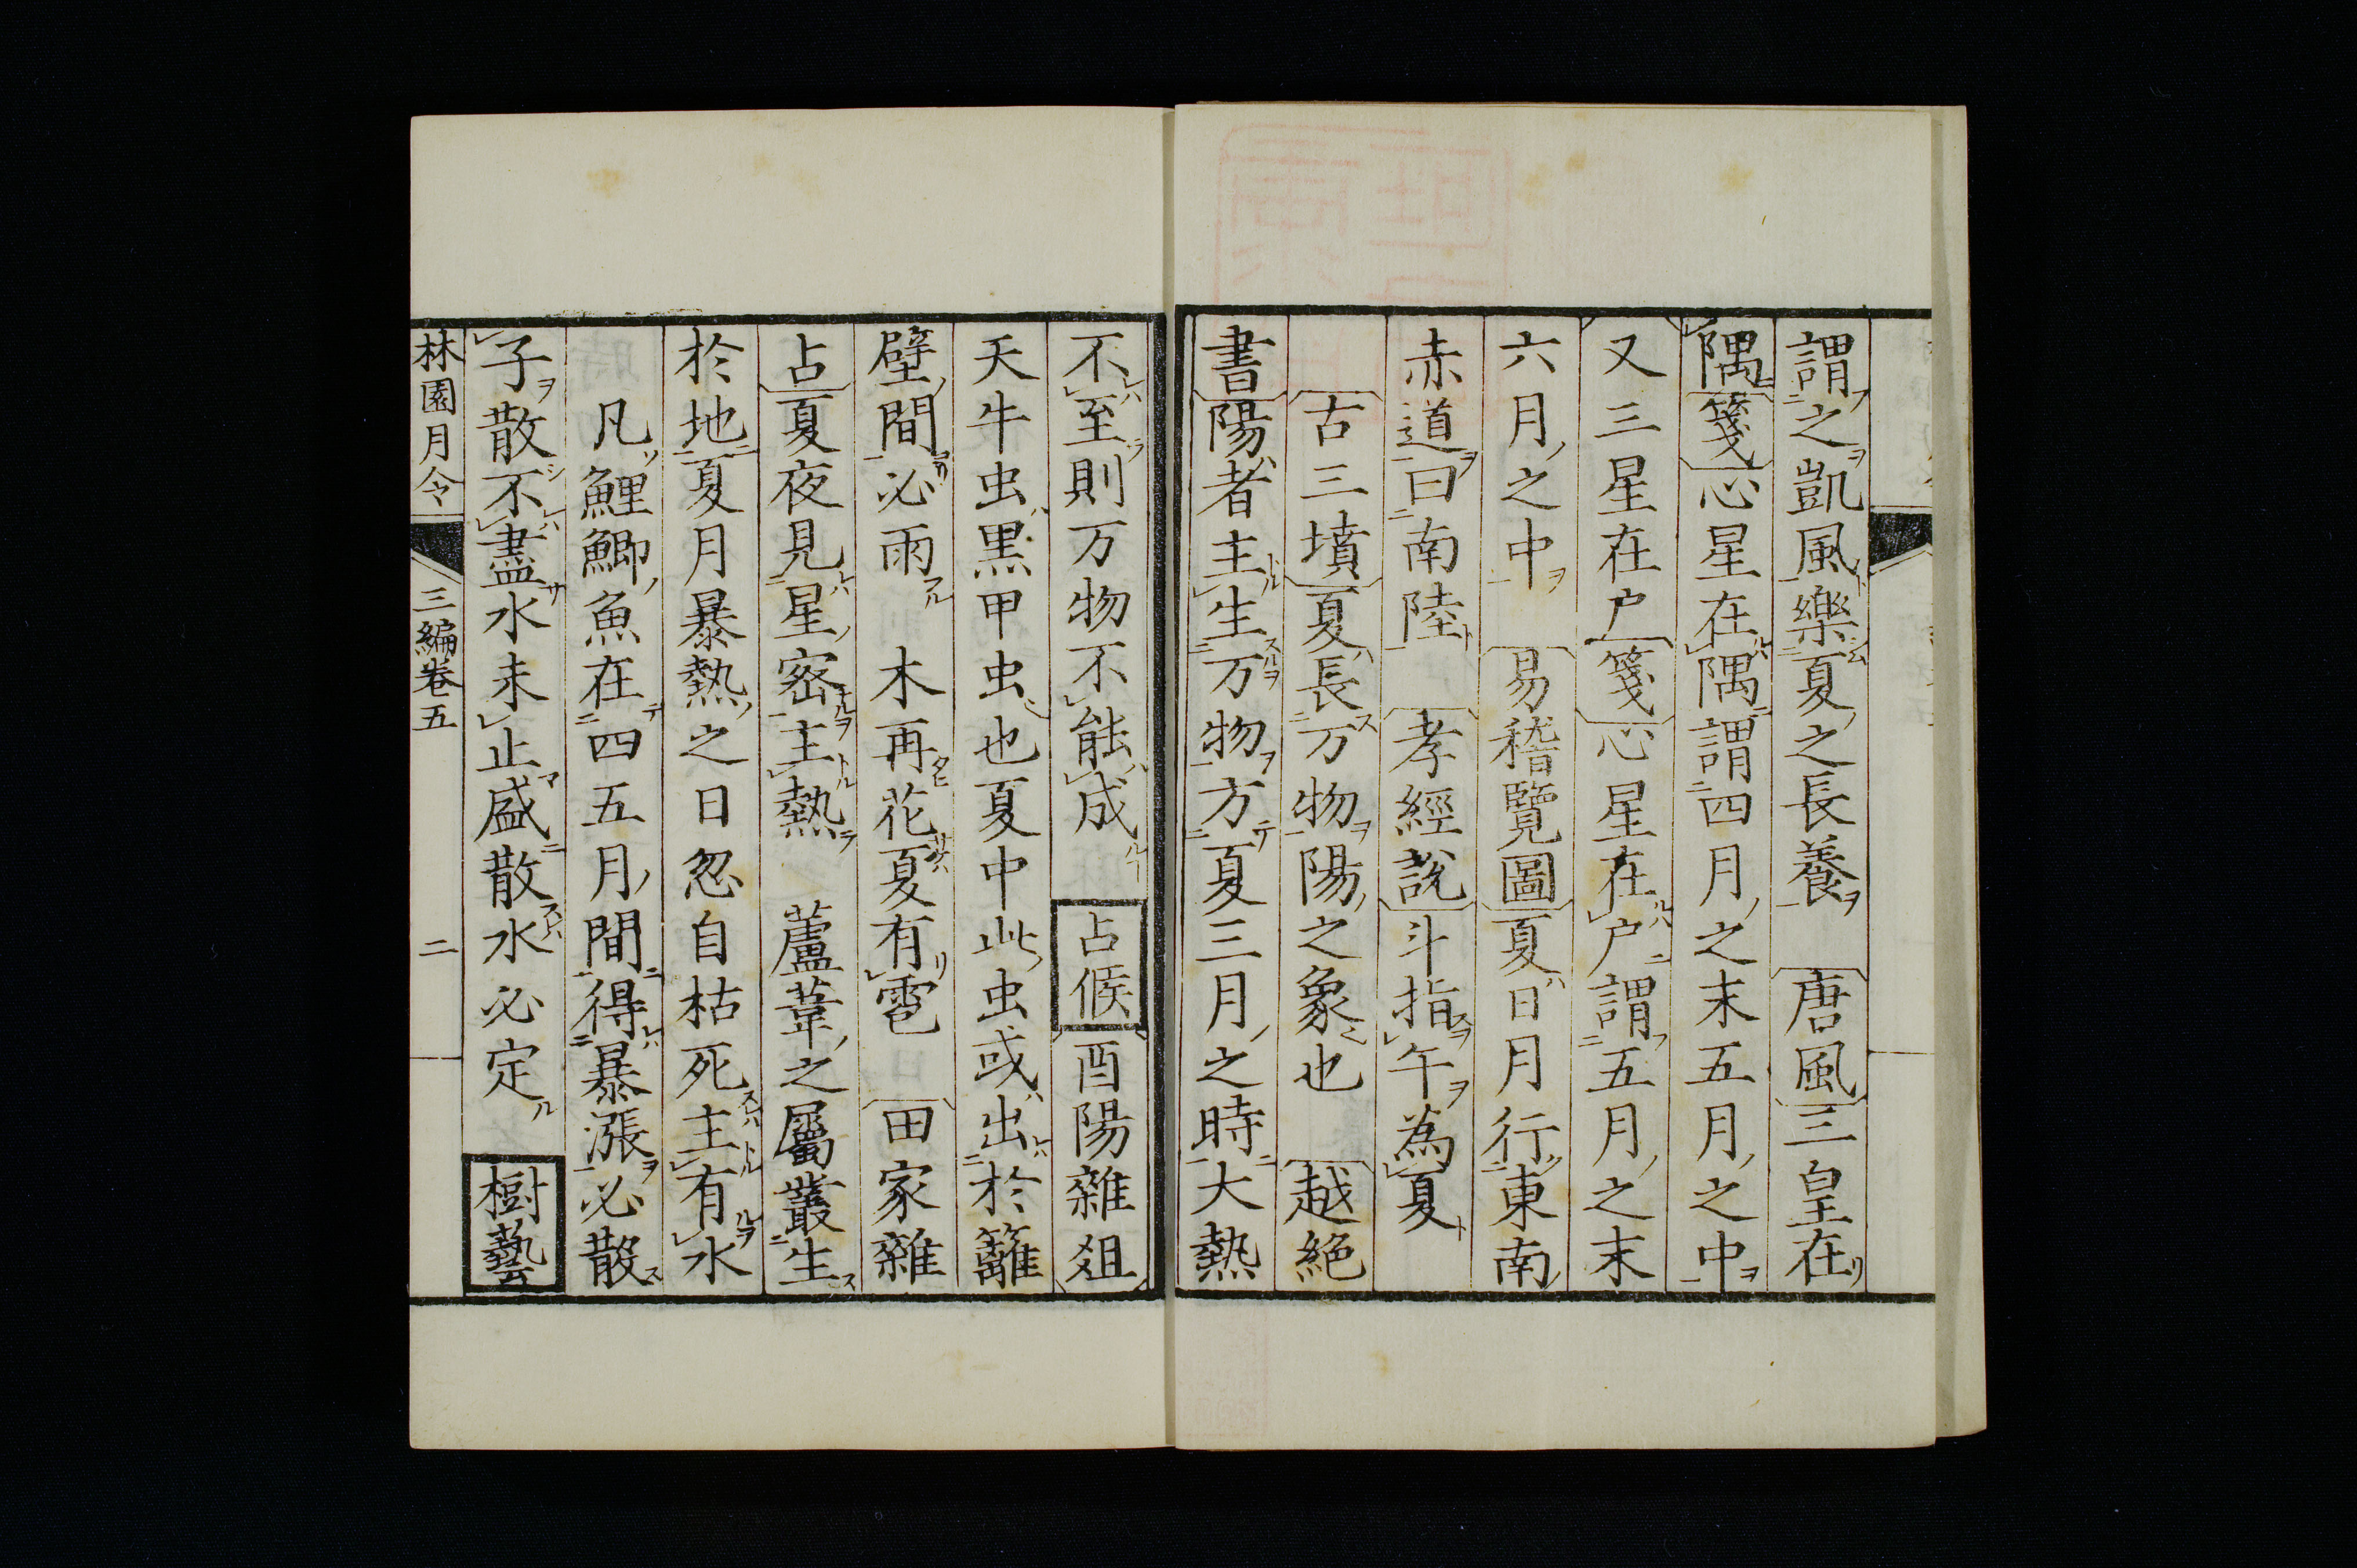 謂之凱風樂夏之長養　唐風三皇在
隅箋心星在隅謂四月之末五月之中
又三星在户箋心星在户謂五月之末
六月之中　易稽覽圖夏日月行東南
赤道曰南陸　孝經說斗指午為夏
古三墳夏長万物陽之象也　越絕
書陽者主生万物方夏三月之時大熱
不至則万物不能成　占候酉陽雜爼
天牛虫黒甲虫也夏中此虫或出於籬
壁間必雨　木再花夏有雹　田家雜
占夏夜見星密主熱　蘆葦之屬叢生
於地夏月暴熱之日忽自枯死主有水
凡鯉鯽魚在四五月間得暴漲必散
子散不盡水未止盛散水必定　樹藝
林園月令　三編卷五　二